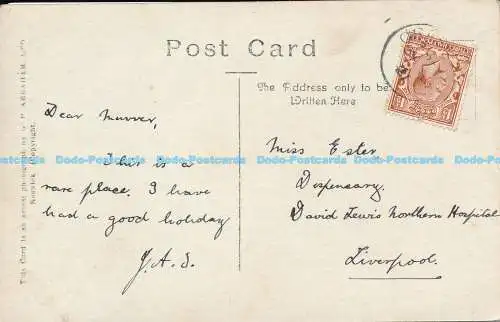 Post Card
The Address only to be
Written Here
This Card is an actual photograph by G. P. ABRAHAM, LTD.
Keswick. Copyright.
Dear
This is a
rare place. I have
had a good holiday
J.A.S.
Miss Ester
Dispensary
David Lewis Northern Hospital
Liverpool.
Dodo-Postcards Dodo-Postcards Dodo-Postcards Dodo-Postcards Dodo-Postcards Dodo-Postcards